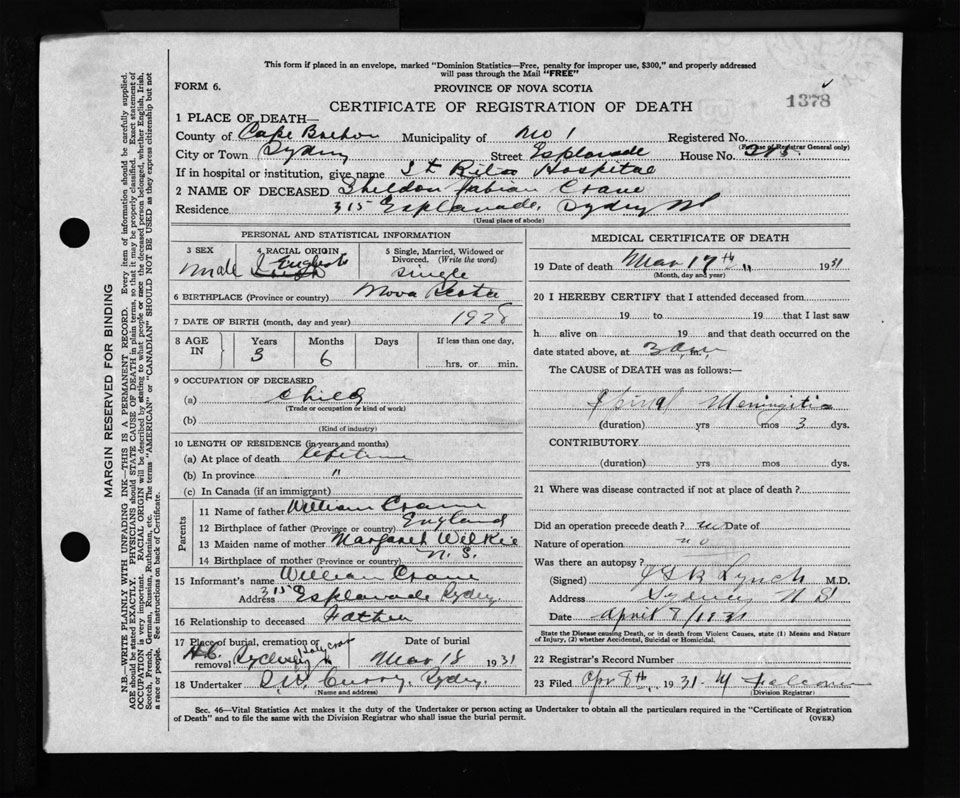 This form if placed in an envelope, marked "Dominion Statistics—Free, penalty for improper use, $300," and properly addressed
will pass through the Mail "FREE"
FORM 6.
PROVINCE OF NOVA SCOTIA
1378
CERTIFICATE OF REGISTRATION OF DEATH
1 PLACE OF DEATH—
County of Cape Breton Municipality of No 1 Registered No.
(For use of Registrar General only)
City or Town Sydney Street Esplanade House No.
If in hospital or institution, give name St Ritas Hospital
2 NAME OF DECEASED Sheldon Fabian Crane
Residence 315 Esplanade, Sydney NS
(Usual place of abode)
PERSONAL AND STATISTICAL INFORMATION
3 SEX male
4 RACIAL ORIGIN English
5 Single, Married, Widowed or Divorced. (Write the word) single
6 BIRTHPLACE (Province or country) Nova Scotia
7 DATE OF BIRTH (month, day and year) 1928
8 AGE IN Years 3 Months 6 Days If less than one day, hrs. or min.
9 OCCUPATION OF DECEASED
(a) child
(Trade or occupation or kind of work)
(b)
(Kind of industry)
10 LENGTH OF RESIDENCE (in years and months)
(a) At place of death lifetime
(b) In province "
(c) In Canada (if an immigrant)
Parents
11 Name of father William Crane
12 Birthplace of father (Province or country) England
13 Maiden name of mother Margaret Wilkie
14 Birthplace of mother (Province or country) N.S.
15 Informant's name William Crane
Address 315 Esplanade Sydney
16 Relationship to deceased Father
17 Place of burial, cremation or removal Holy Cross Sydney
Date of burial Mar 18 1931
18 Undertaker Curry, Sydney.
(Name and address)
MEDICAL CERTIFICATE OF DEATH
19 Date of death Mar 17th " 1931
(Month, day and year)
20 I HEREBY CERTIFY that I attended deceased from
19 to 19 that I last saw
h alive on 19 and that death occurred on
date stated above, at 3 a m.
The CAUSE of DEATH was as follows:—
Spinal Meningitis
(duration) yrs mos 3 dys.
CONTRIBUTORY
(duration) yrs mos dys.
21 Where was disease contracted if not at place of death?
Did an operation precede death? no Date of
Nature of operation no
Was there an autopsy?
(Signed) Lynch M.D.
Address Sydney N S
Date April 8/1931
State the Disease causing Death, or in death from Violent Causes, state (1) Means and Nature
of Injury, (2) whether Accidental, Suicidal or Homicidal.
22 Registrar's Record Number
23 Filed Apr 8th 1931
(Division Registrar)
Sec. 46—Vital Statistics Act makes it the duty of the Undertaker or person acting as Undertaker to obtain all the particulars required in the "Certificate of Registration
of Death" and to file the same with the Division Registrar who shall issue the burial permit.
(OVER)
MARGIN RESERVED FOR BINDING
N.B.—WRITE PLAINLY WITH UNFADING INK—THIS IS A PERMANENT RECORD. Every item of information should be carefully supplied.
AGE should be stated EXACTLY. PHYSICIANS should STATE CAUSE OF DEATH in plain terms, so that it may be properly classified. Exact statement of
OCCUPATION is very important. RACIAL ORIGIN will be described by stating to what people or race the deceased person belonged, whether English, Irish,
Scotch, French, German, Russian, Ruthenian, etc. The terms "AMERICAN" or "CANADIAN" SHOULD NOT BE USED as they express citizenship but not
a race or people. See instructions on back of Certificate.